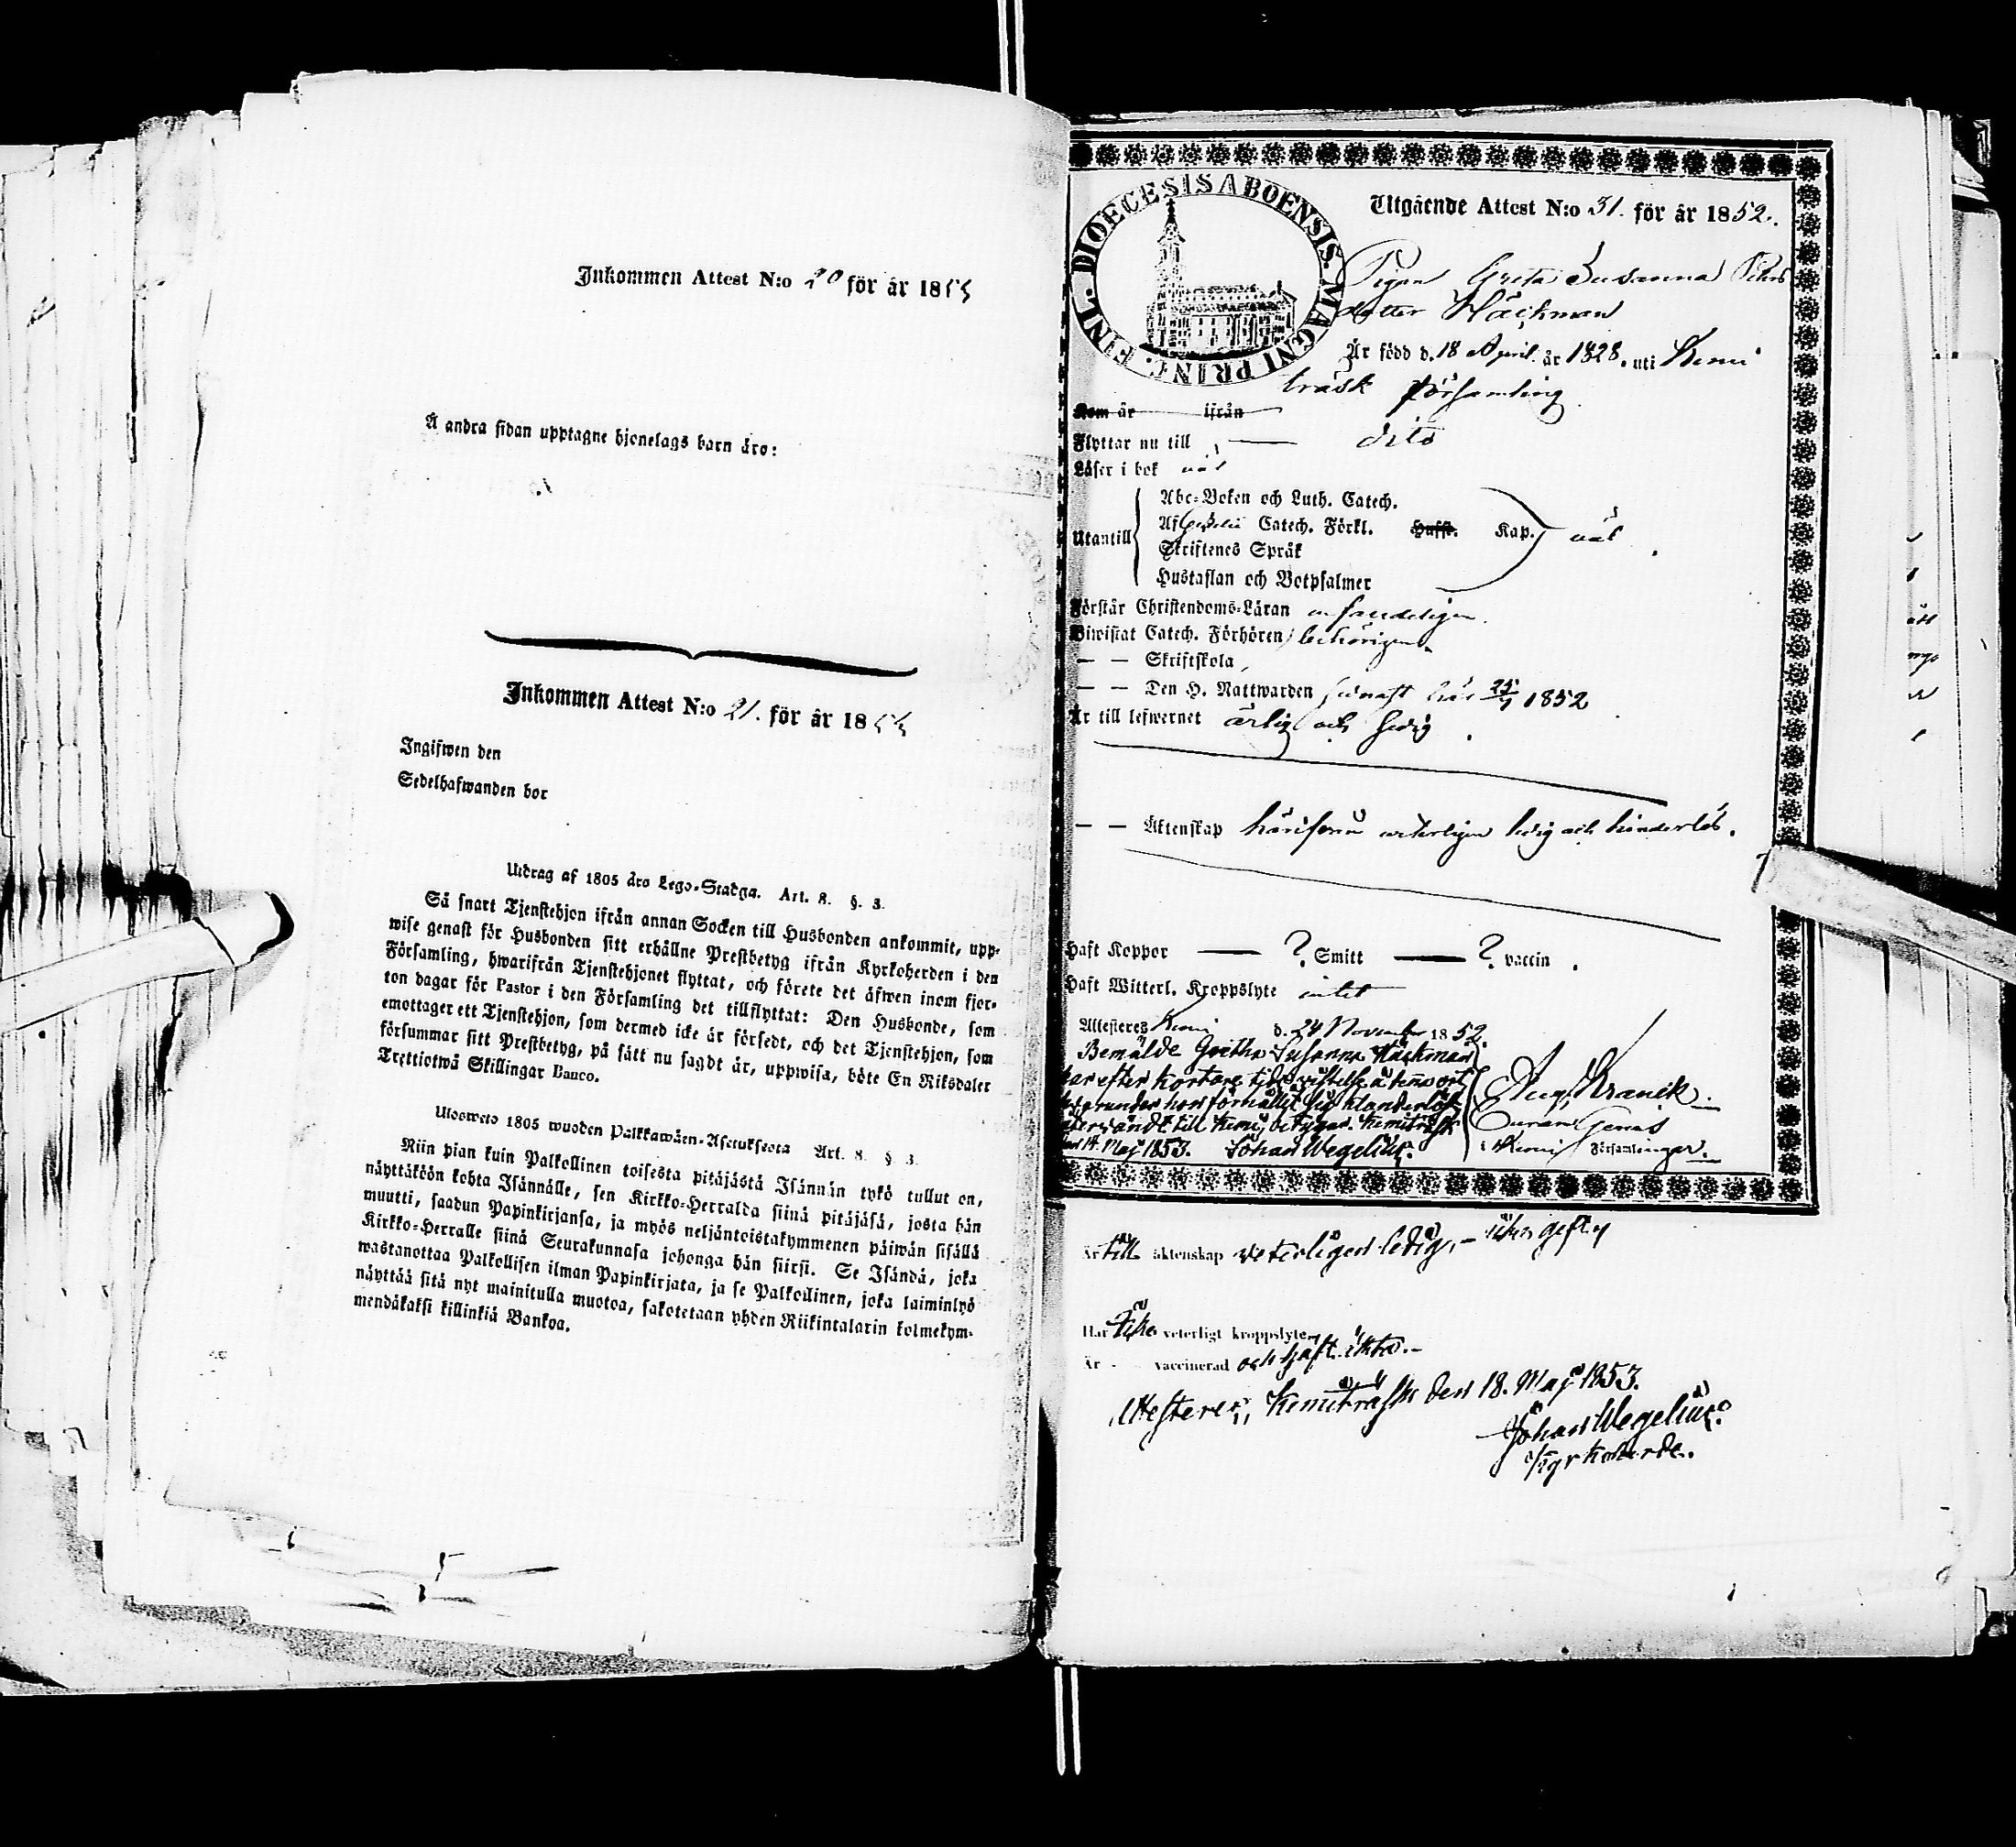 Inkommen Attest N:o 20 för år 1853
Å andra sidan upptagne hjonelags barn äro:
Inkommen Attest N:o 21. för år 18
Ingifwen den
Sedelhafwanden bor
Utdrag af 1805 års Lego-Stadga. Art. 8. §. 3.
Så snart Tjenstehjon ifrån annan Socken till Husbonden ankommit, upp-
wise genast för Husbonden sitt erhållne Prestbetyg ifrån Kyrkoherden i den
Församling, hwarifrån Tjenstehjonet flyttat, och förete det äfwen inom fjor-
ton dagar för Pastor i den Församling det tillflyttat: Den Husbonde, som
emottager ett Tjenstehjon, som dermed icke är försedt, och det Tjenstehjon, som
försummar sitt Prestbetyg, på sätt nu sagdt är, uppwisa, böte En Riksdaler
Trettiotwå Skillingar Banco.
Ulosweto 1805 wuoden Palkkawäen-Asetuksesta Art. 8. § 3.
Niin pian kuin Palkollinen toisesta pitäjästä Isännän tykö tullut on,
näyttäköön kohta Isännälle, sen Kirkko-Herralda siinä pitäjäsä, josta hän
muutti, saadun Papinkirjansa, ja myös neljäntoistakymmenen päiwän sisällä
Kirkko-Herralle siinä Seurakunnasa johonga hän siirsi. Se Isändä, joka
wastanottaa Palkollisen ilman Papinkirjata, ja se Palkollinen, joka laiminlyö
näyttää sitä nyt mainitulla muotoa, sakotetaan yhden Riikintalarin kolmekym-
mendäkaksi killinkiä Bankoa.
DIOECESIS ABOENSIS. MAGNI PRINC. FINL.
Utgående Attest N:o 31. för år 1852.
Pigan Greta Susanna Peters
dotter Häckman
Är född d. 18 April år 1828. uti Kemi
träsk församling
Kom år ifrån
Flyttar nu till dito
Läser i bok väl
Abc-Boken och Luth. Catech.
Utantill Af Catech. Förkl. Huffst. Kap. väl
Skriftenes Språk
Hustaflan och Botpsalmer
Förstår Christendoms-Läran
Biwistat Catech. Förhören behörigen
— — Skriftskola
— — Den H. Nattwarden senast här 1852
Är till lefwernet ärlig och
— — Äktenskap härifrån veterligen ledig och hinderlös.
Haft Koppor — ? Smitt — ? vaccin.
Haft Witterl. Kroppslyte intet
Attesteres Kemi d. 24 November 1852.
Bemälde Gretha Susanna Häckman
har efter kortare tids vistelse å denna ort
hvarunder hon förhållit sig klanderlöst
återvändt till Kemi, betygar. Kemiträsk
den 14. Maj 1853. Johan Wegelius.
Aug. Kranck.
i Kemi Församlingar.
Är till äktenskap veterligen ledig, — gift
Har veterligt kroppslyte
Är vaccinerad och haft
Attesterer, Kemiträsk den 18. Maj 1853.
Johan Wegelius.
Kyrkoherde.